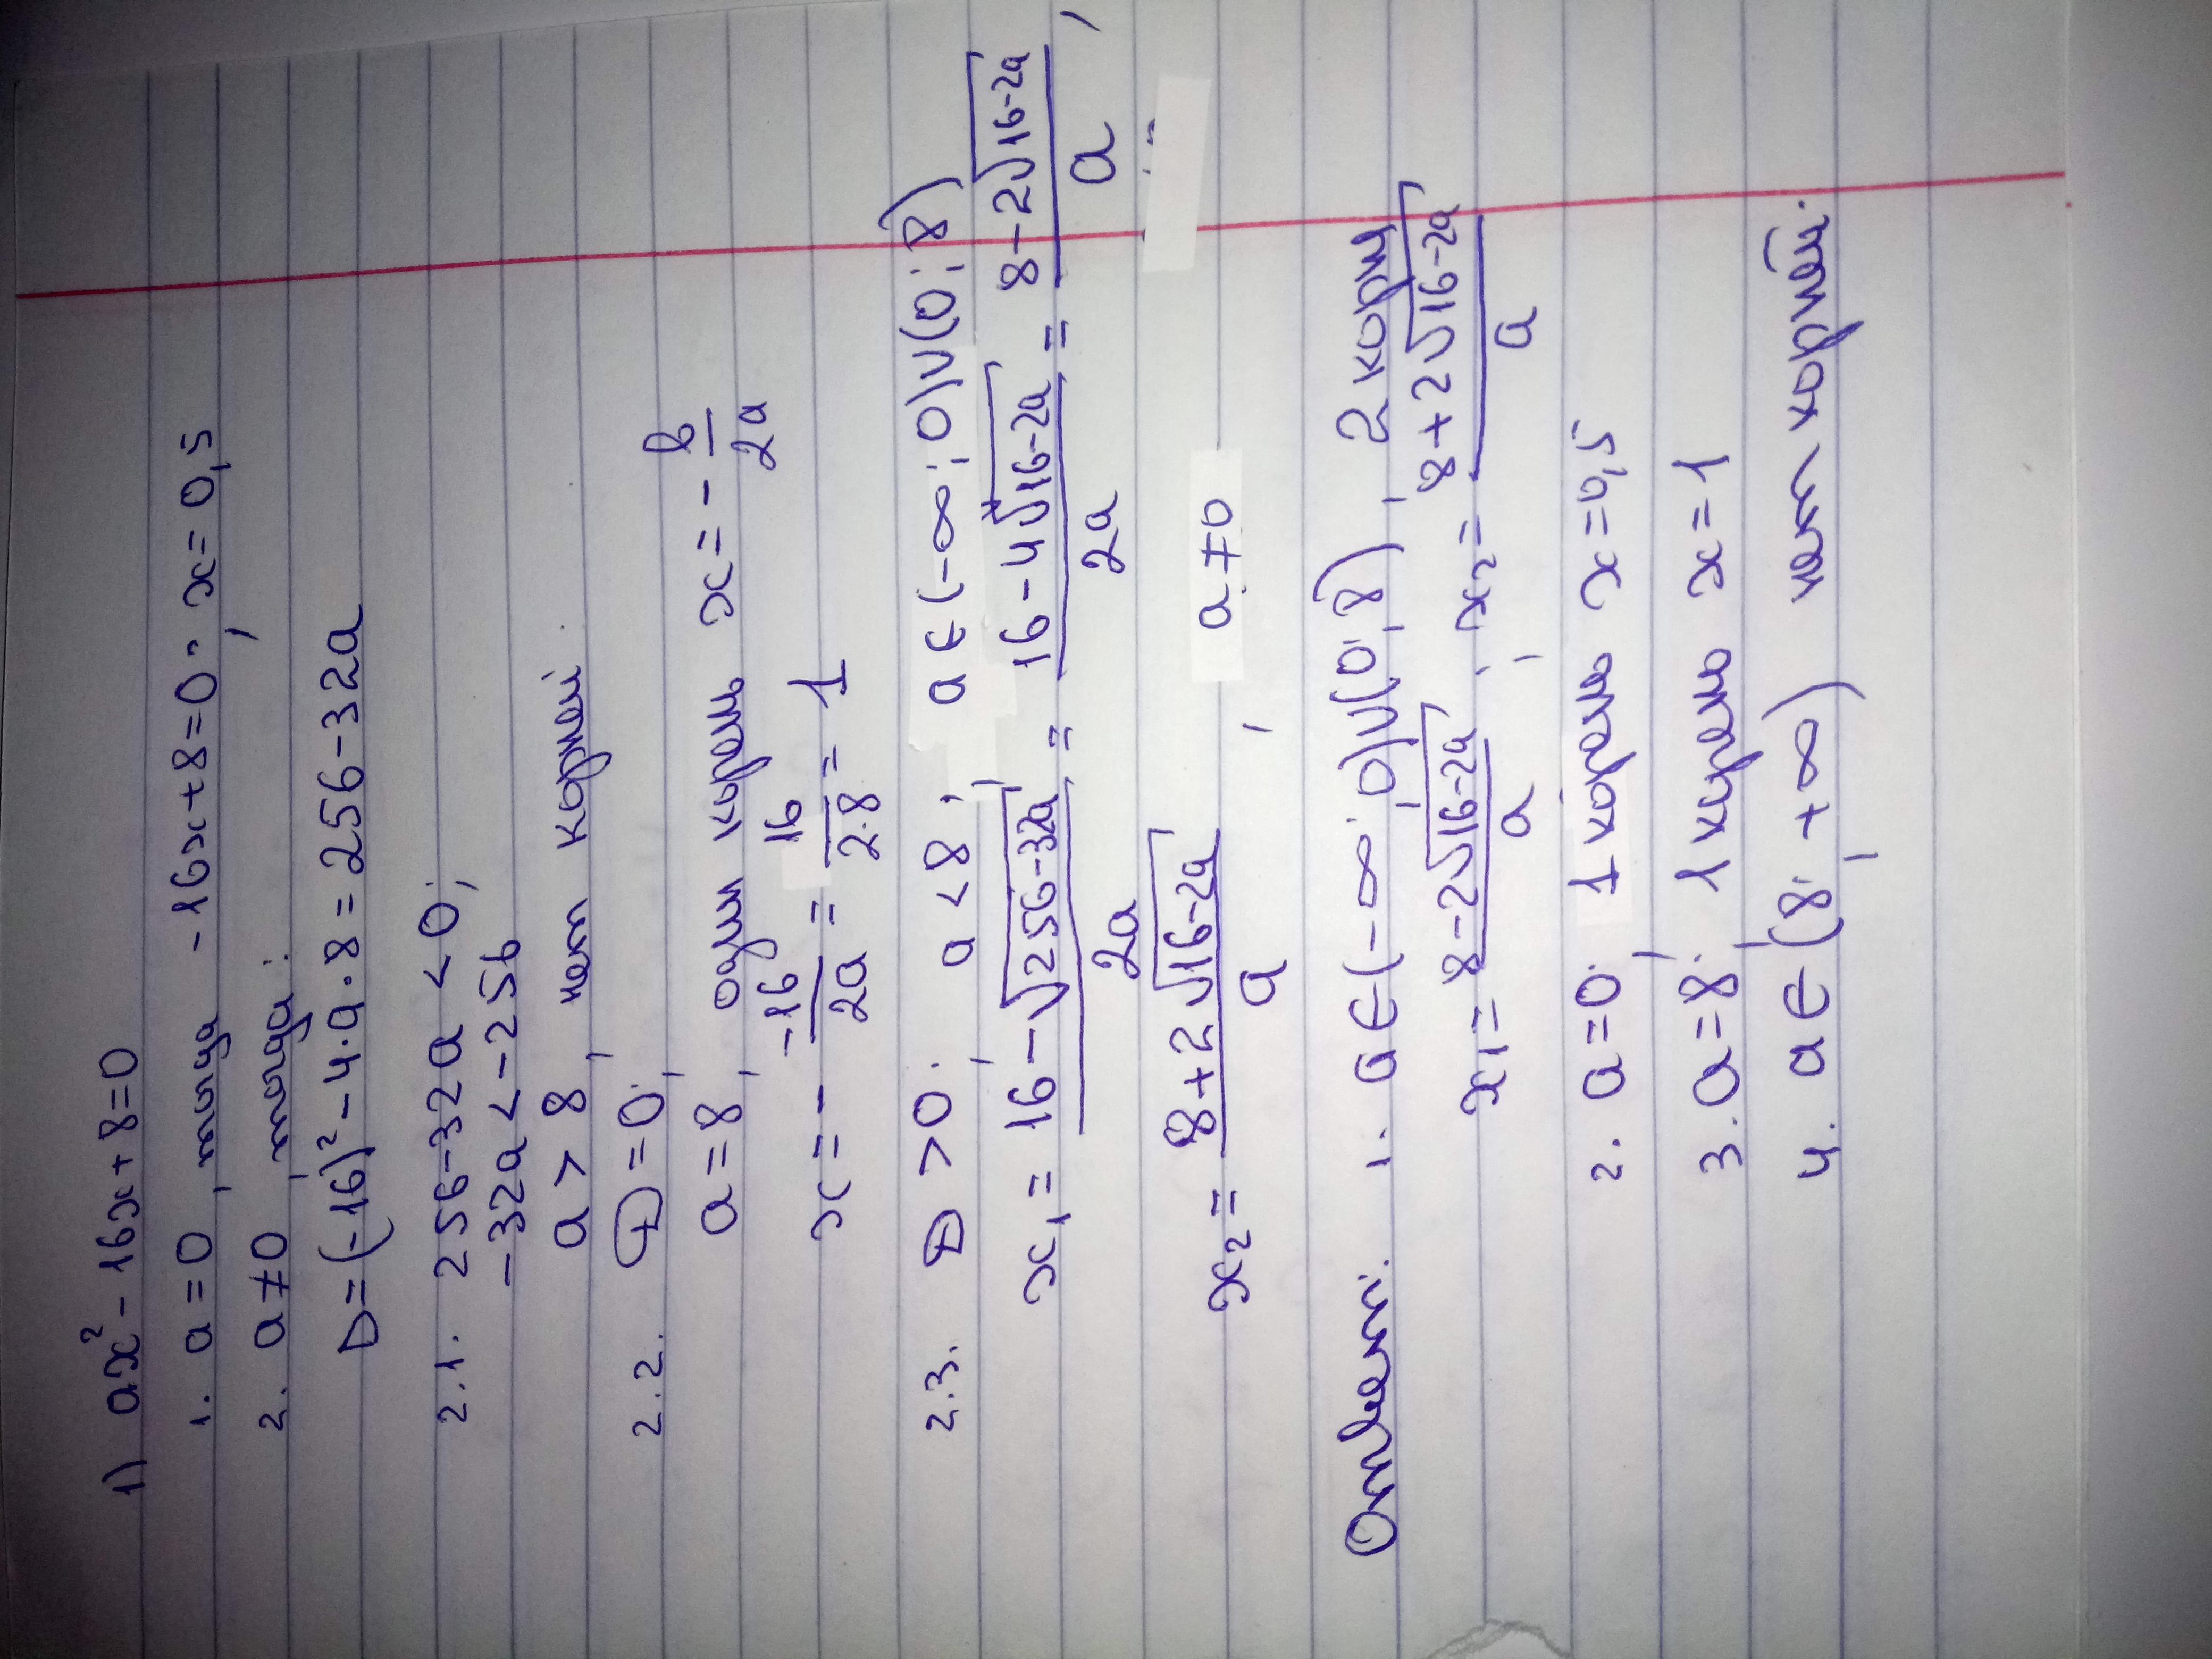 1) ax² - 16x + 8 = 0
1. a = 0, тогда -16x + 8 = 0; x = 0,5
2. a ≠ 0, тогда:
D = (-16)² - 4·a·8 = 256 - 32a
2.1. 256 - 32a < 0;
-32a < -256
a > 8, нет корней
2.2. D = 0;
a = 8, один корень x = - b/2a
x = - -16/2a = 16/2·8 = 1
2.3. D > 0; a < 8; a ∈ (-∞; 0) ∪ (0; 8)
x₁ = (16 - √(256-32a))/2a = (16 - 4√(16-2a))/2a = (8 - 2√(16-2a))/a,
x₂ = (8 + 2√(16-2a))/a, a ≠ 0
Ответ: 1. a ∈ (-∞; 0) ∪ (0; 8), 2 корня
x₁ = (8 - 2√(16-2a))/a; x₂ = (8 + 2√(16-2a))/a
2. a = 0; 1 корень x = 0,5
3. a = 8; 1 корень x = 1
4. a ∈ (8; +∞) нет корней.